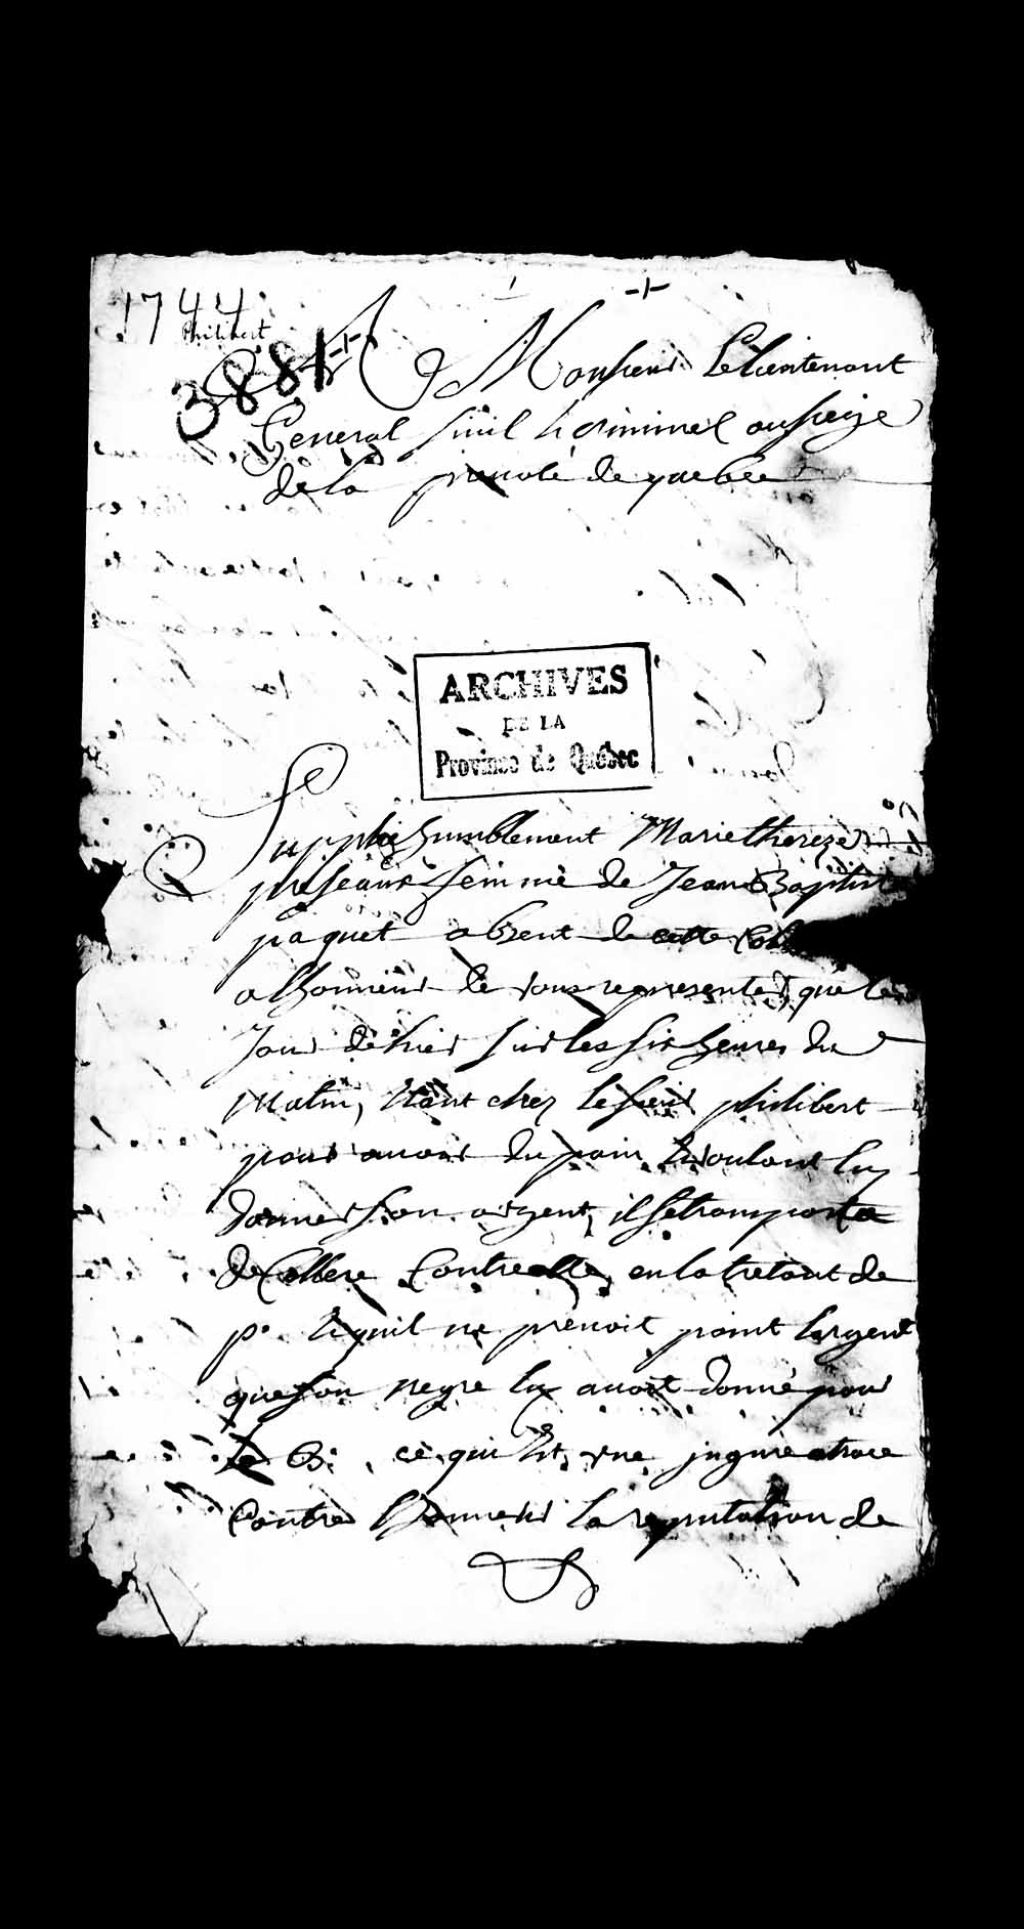 1744
Philibert
3881
A Monsieur Le Lieutenant
General Civil & criminel au siege
de la prevoté de quebec
ARCHIVES
DE LA
Province de Québec
Supplie humblement Marie thereze
femme de Jean Baptist
paquet absent de cette Col
a lhonneur de vous representer, que le
Jour dhier sur les six heures du
matin, Etant chez le sieur philibert
pour avoir du pain & voulant luy
donner son argent, il se transporta
de Collere Contre elle, en la tretant de
p. & quil ne prenoit point largent
que son negre luy avoit donné pour
le B. ce qui Est une injure atroce
Contre lhonneur la reputation de